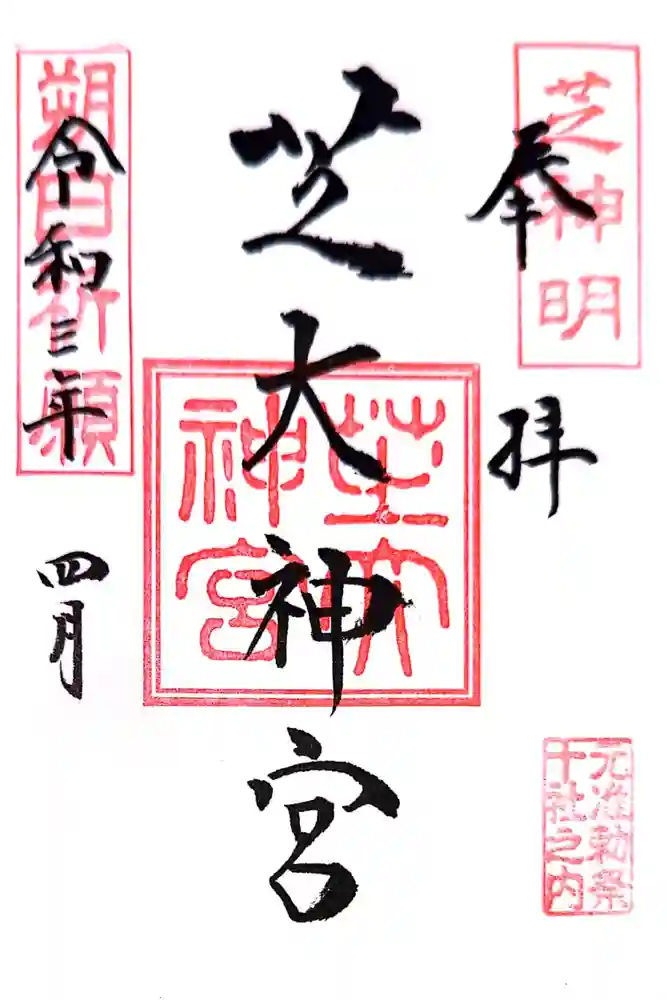 奉拝
芝神明
芝大神宮
芝大神宮
令和三年
四月
朔日祈願
元准勅祭
十社之内